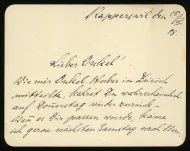 Rapperswil den 15/IV
18.
Lieber Onkel!
Wie mir Onkel Herber in Zürich
mitteilte, kehrst Du wahrscheinlich
auf Donnerstag wieder zurück.
Wenn es Dir passen würde, käme
ich gerne nächsten Samstag nach